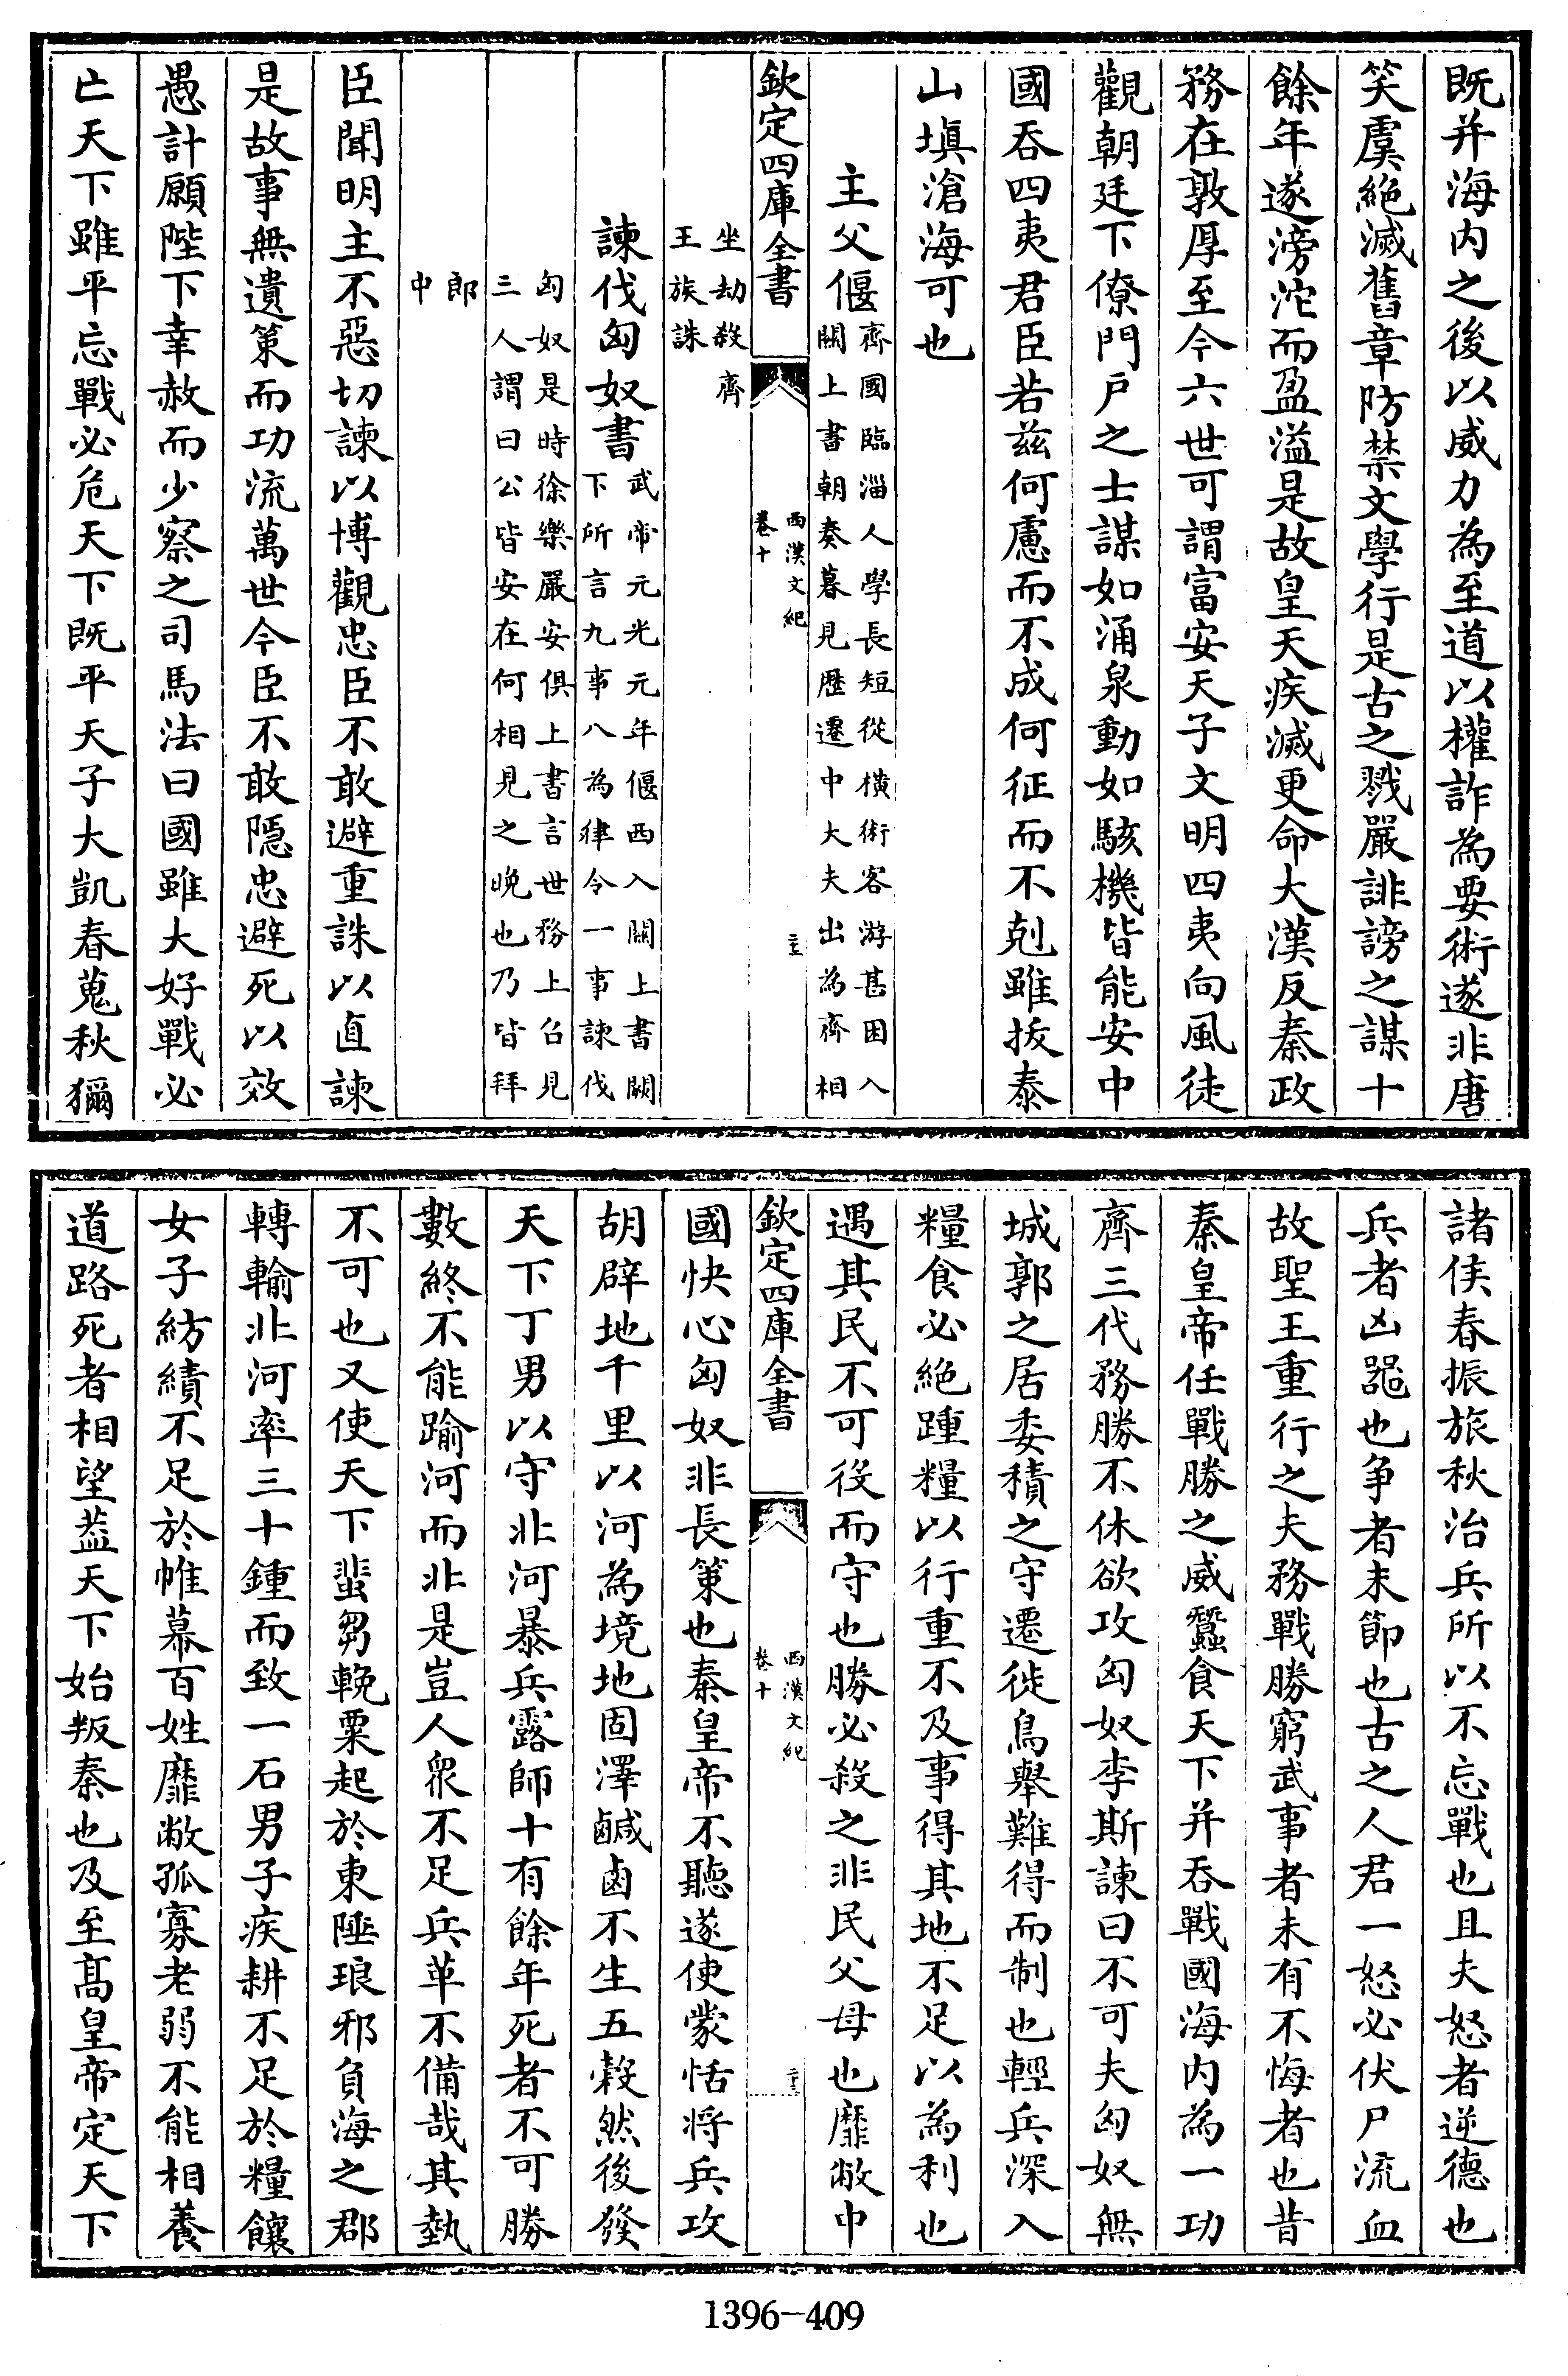 既并海内之後以威力為至道以權詐為要術遂非唐
笑虞絶滅舊章防禁文學行是古之戮嚴誹謗之謀十
餘年遂滂沱而盈溢是故皇天疾滅更命大漢反秦政
務在敦厚至今六世可謂富安天子文明四夷向風徒
觀朝廷下僚門戶之士謀如涌泉動如駭機皆能安中
國吞四夷君臣若兹何慮而不成何征而不剋雖拔泰
山填滄海可也
主父偃齊國臨淄人學長短從横術客游甚困入
關上書朝奏暮見歴遷中大夫出為齊相
欽定四庫全書
西漢文紀
卷十
主
坐劫殺齊
王族誅
諫伐匈奴書武帝元光元年偃西入關上書闕
下所言九事八為律令一事諫伐
匈奴是時徐樂嚴安俱上書言世務上召見
三人謂曰公皆安在何相見之晚也乃皆拜
郎
中
臣聞明主不惡切諫以博觀忠臣不敢避重誅以直諫
是故事無遺策而功流萬世今臣不敢隱忠避死以效
愚計願陛下幸赦而少察之司馬法曰國雖大好戰必
亡天下雖平忘戰必危天下既平天子大凱春蒐秋獮
諸侯春振旅秋治兵所以不忘戰也且夫怒者逆德也
兵者凶噐也争者末節也古之人君一怒必伏尸流血
故聖王重行之夫務戰勝窮武事者未有不悔者也昔
秦皇帝任戰勝之威蠶食天下并吞戰國海内為一功
齊三代務勝不休欲攻匈奴李斯諫曰不可夫匈奴無
城郭之居委積之守遷徙鳥舉難得而制也輕兵深入
糧食必絶踵糧以行重不及事得其地不足以為利也
遇其民不可役而守也勝必殺之非民父母也靡敝中
欽定四庫全書
西漢文紀
卷十
三
國快心匈奴非長策也秦皇帝不聽遂使蒙恬将兵攻
胡辟地千里以河為境地固澤鹹鹵不生五穀然後發
天下丁男以守北河暴兵露師十有餘年死者不可勝
數終不能踰河而北是豈人衆不足兵革不備哉其埶
不可也又使天下蜚芻輓粟起於東陲琅邪負海之郡
轉輸北河率三十鍾而致一石男子疾耕不足於糧饟
女子紡績不足於帷幕百姓靡敝孤寡老弱不能相養
道路死者相望葢天下始叛秦也及至髙皇帝定天下
1396-409